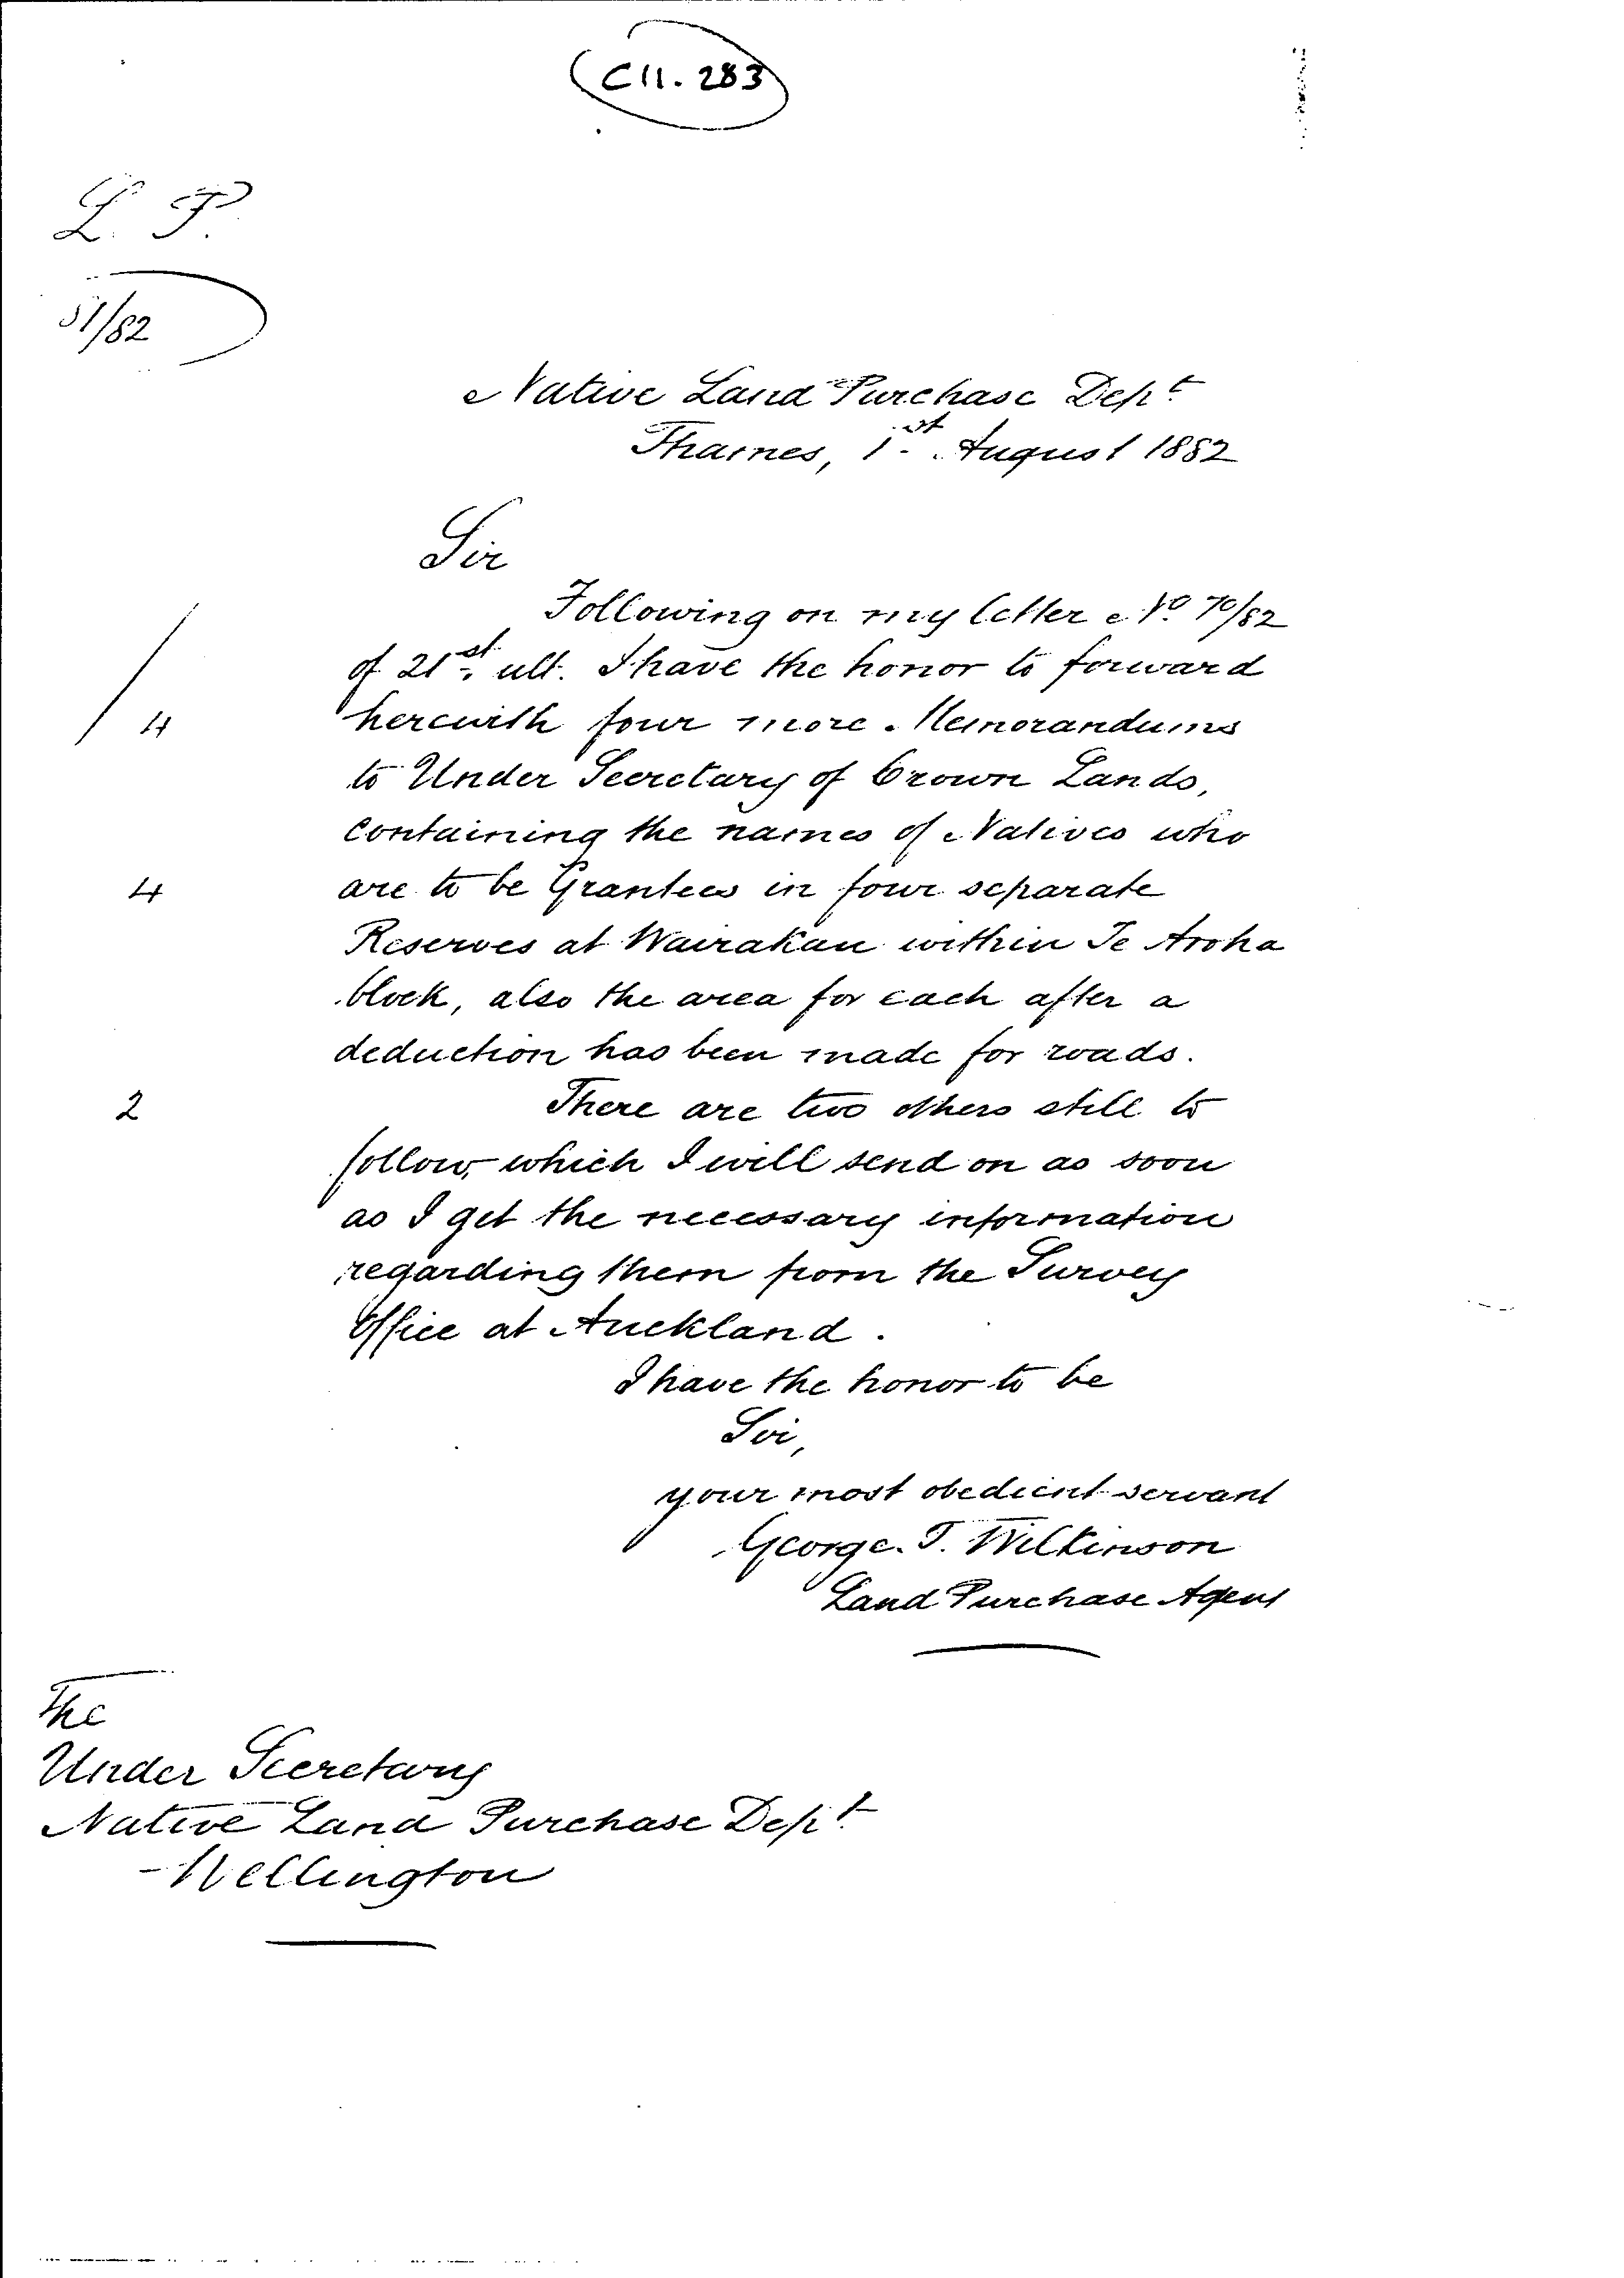 C11. 283
L. P.
51/82
Native Land Purchase Dept
Thames, 1st August 1882
Sir
Following on my letter No. 70/82
of 21st ult. I have the honor to forward
4 herewith four more Memorandums
to Under Secretary of Crown Lands,
containing the names of Natives who
4 are to be Grantees in four separate
Reserves at Wairakau within Te Aroha
block, also the area for each after a
deduction has been made for roads.
2 There are two others still to
follow, which I will send on as soon
as I get the necessary information
regarding them from the Survey
Office at Auckland.
I have the honor to be
Sir,
your most obedient servant
George. T. Wilkinson
Land Purchase Agent
The
Under Secretary
Native Land Purchase Dept
Wellington